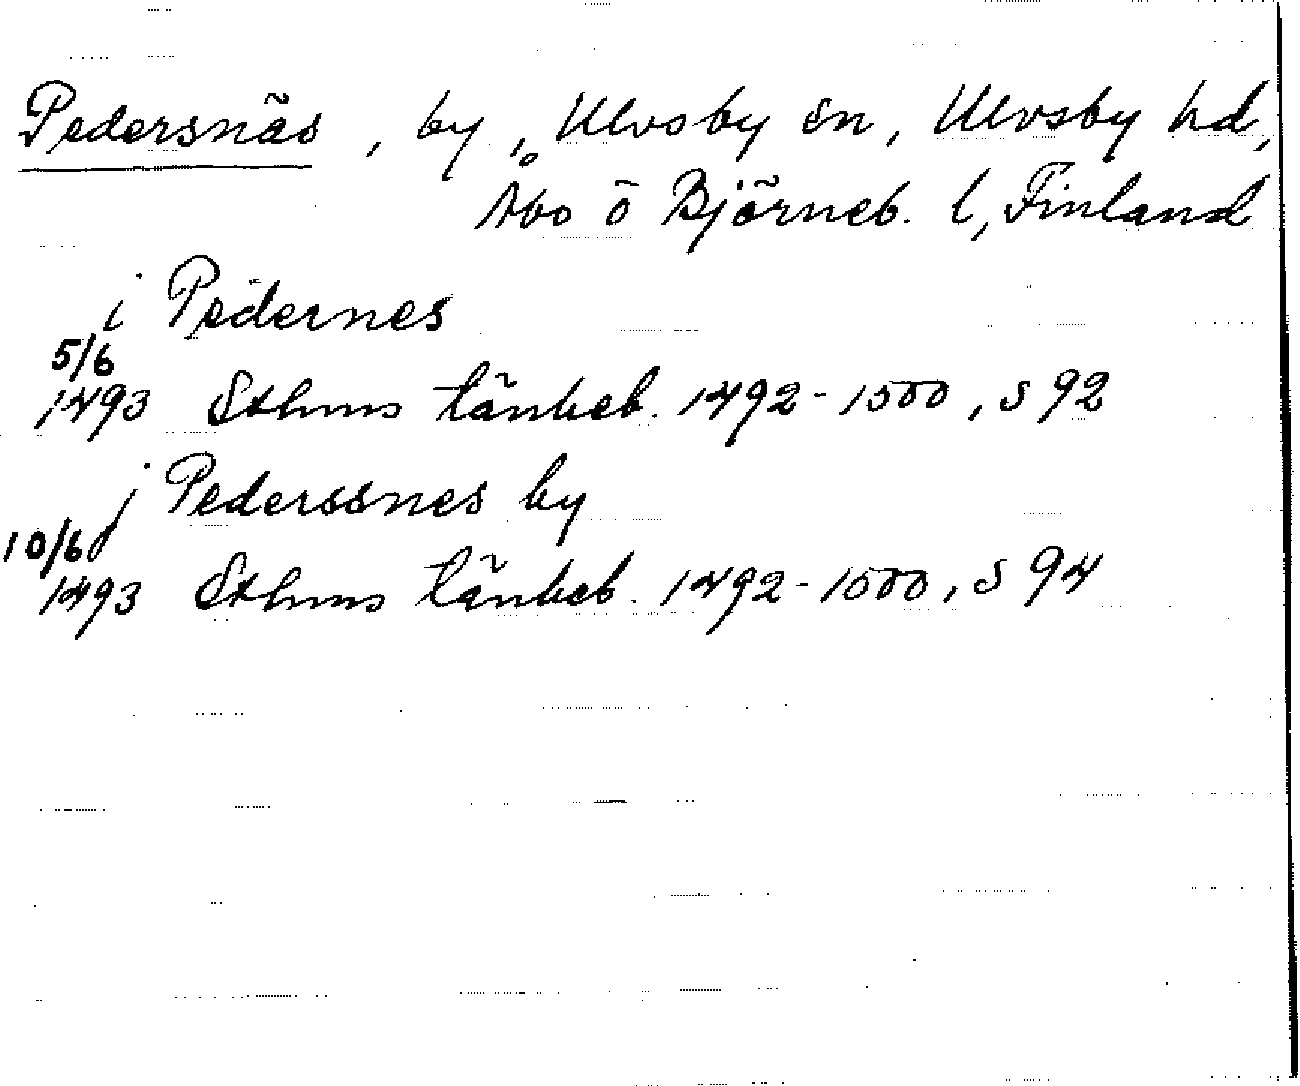 Pedersnäs, by, Ulvsby sn, Ulvsby hd,
Åbo ö Björneb. l, Finland
i Pedernes
5/6
1493 Sthms tänkeb. 1492-1500, s 92
j Pederssnes by
10/6
1493 Sthms tänkeb. 1492-1500, s 94